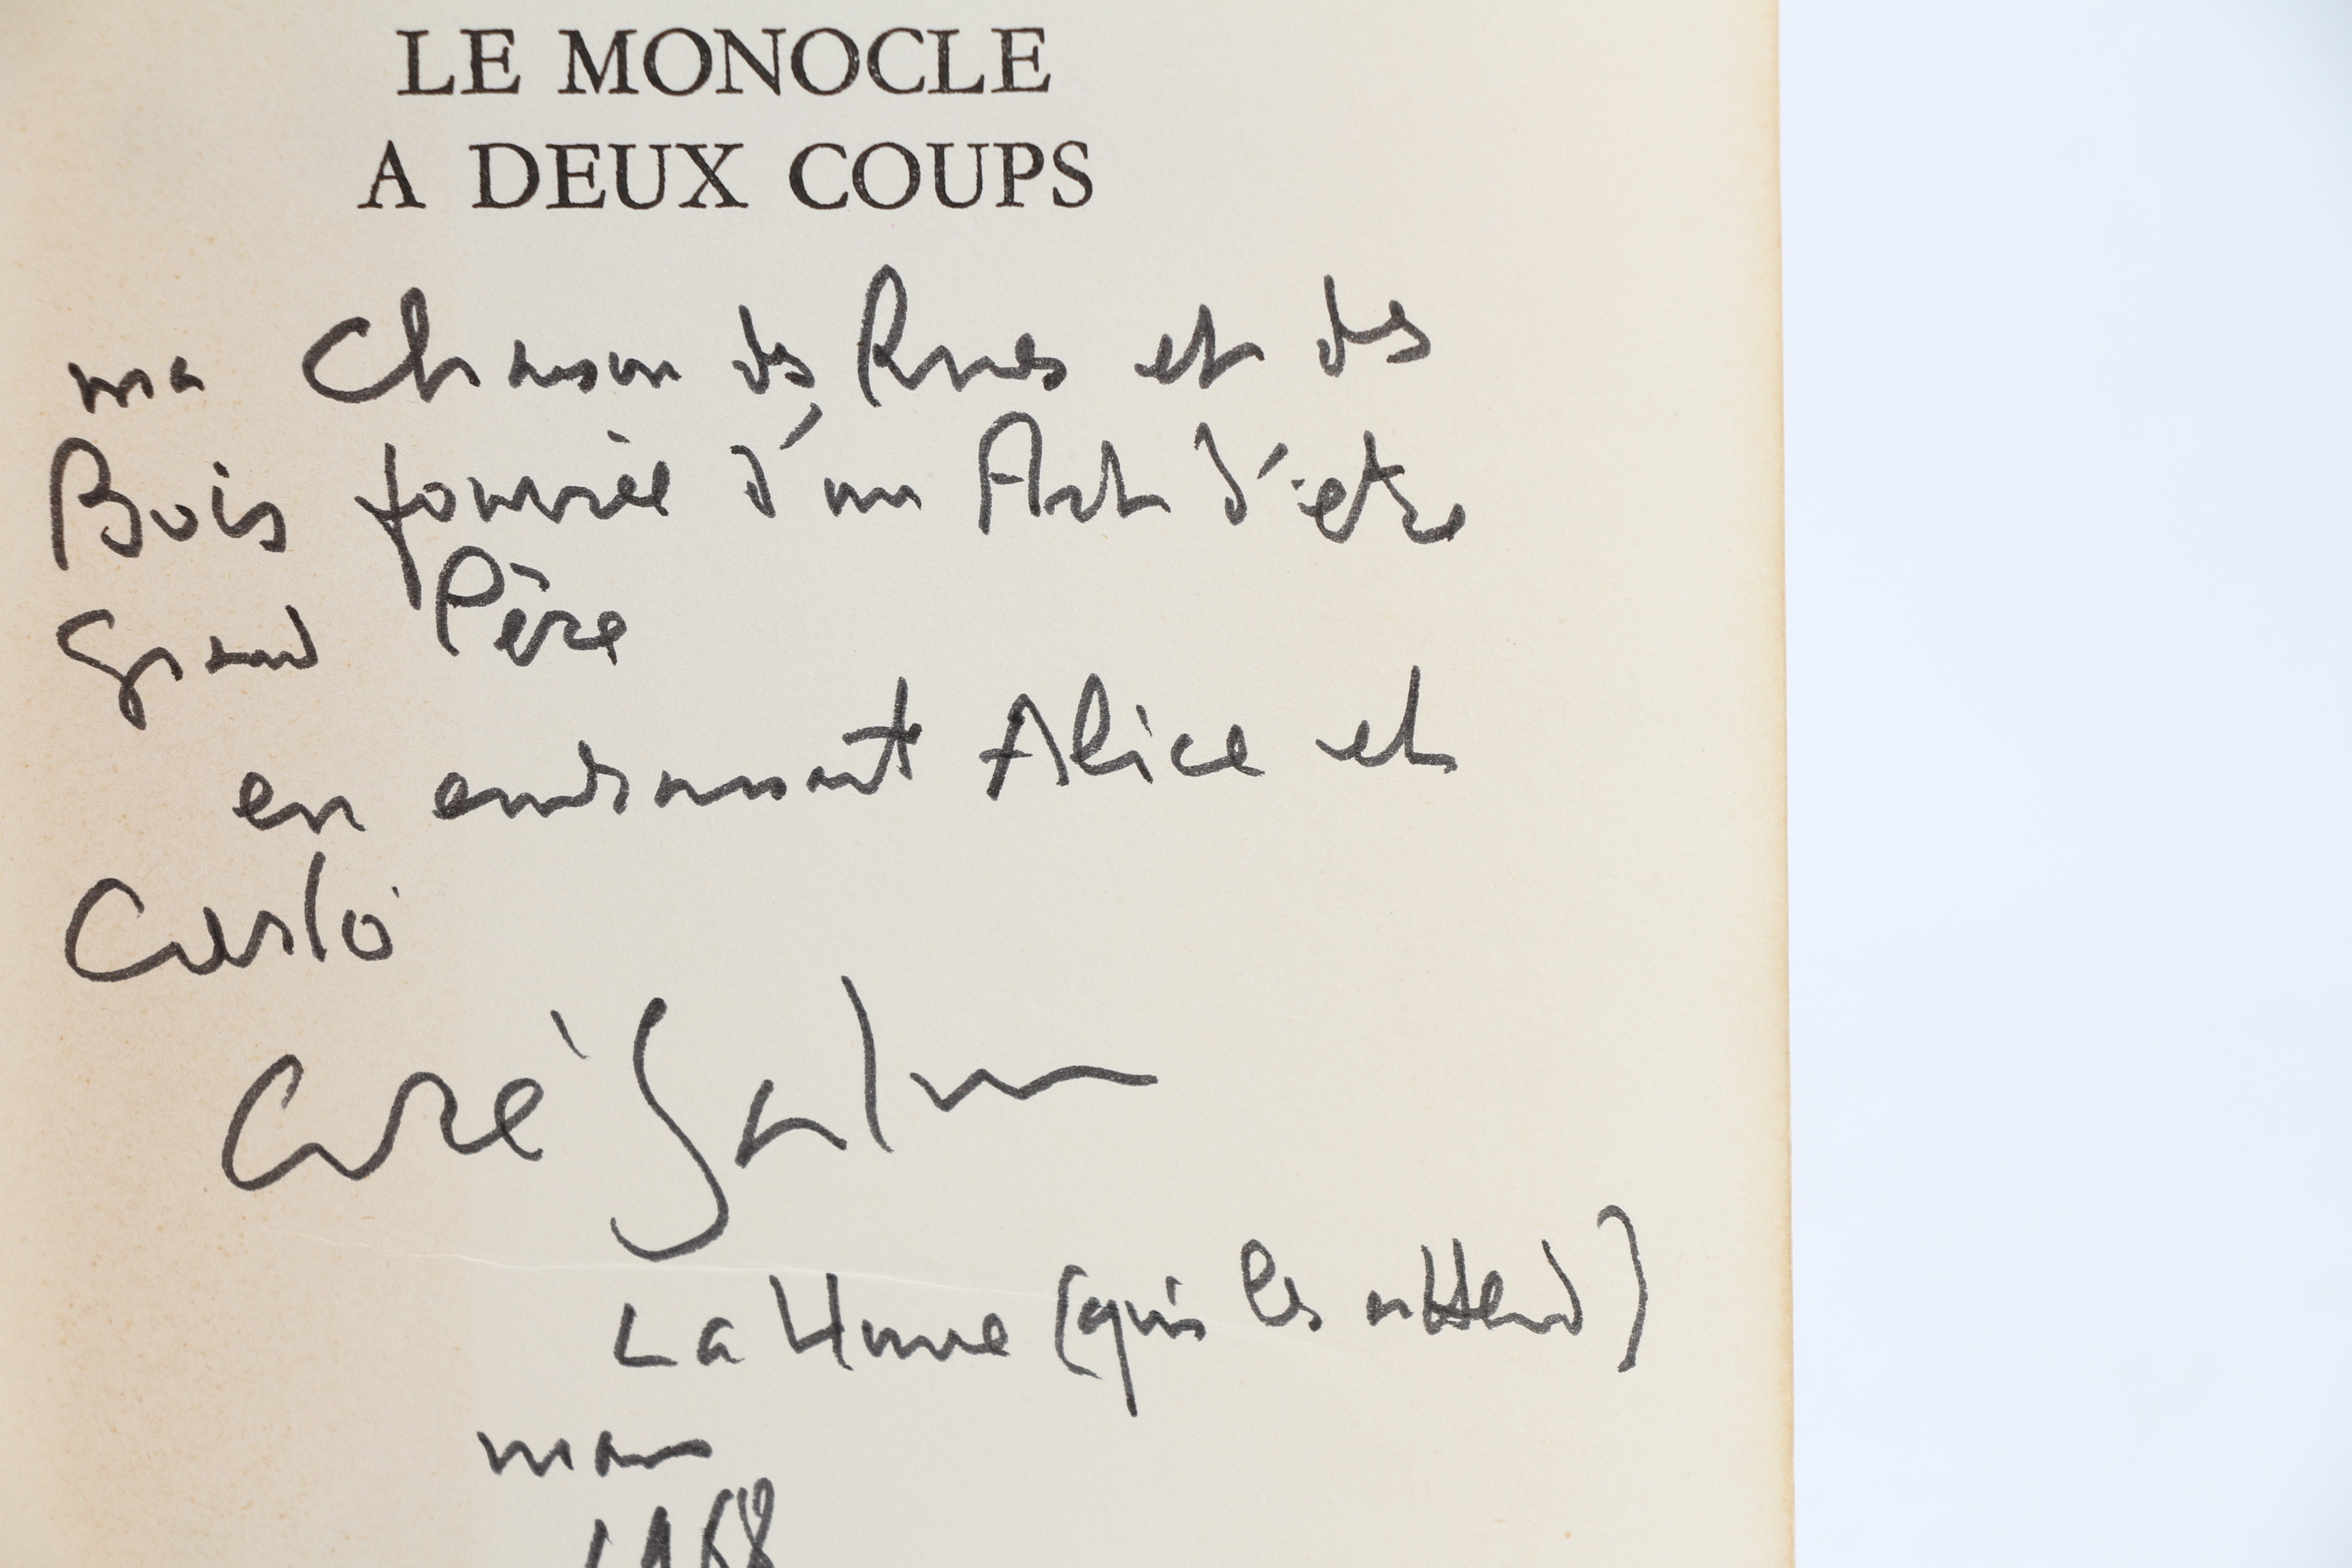 LE MONOCLE
A DEUX COUPS
ma Chanson des Rues et des
Bois fourrée d'un Art d'être
Grand Père
en embrassant Alice et
Carlo
André Salmon
La Hune (qui les attend)
mars
1968